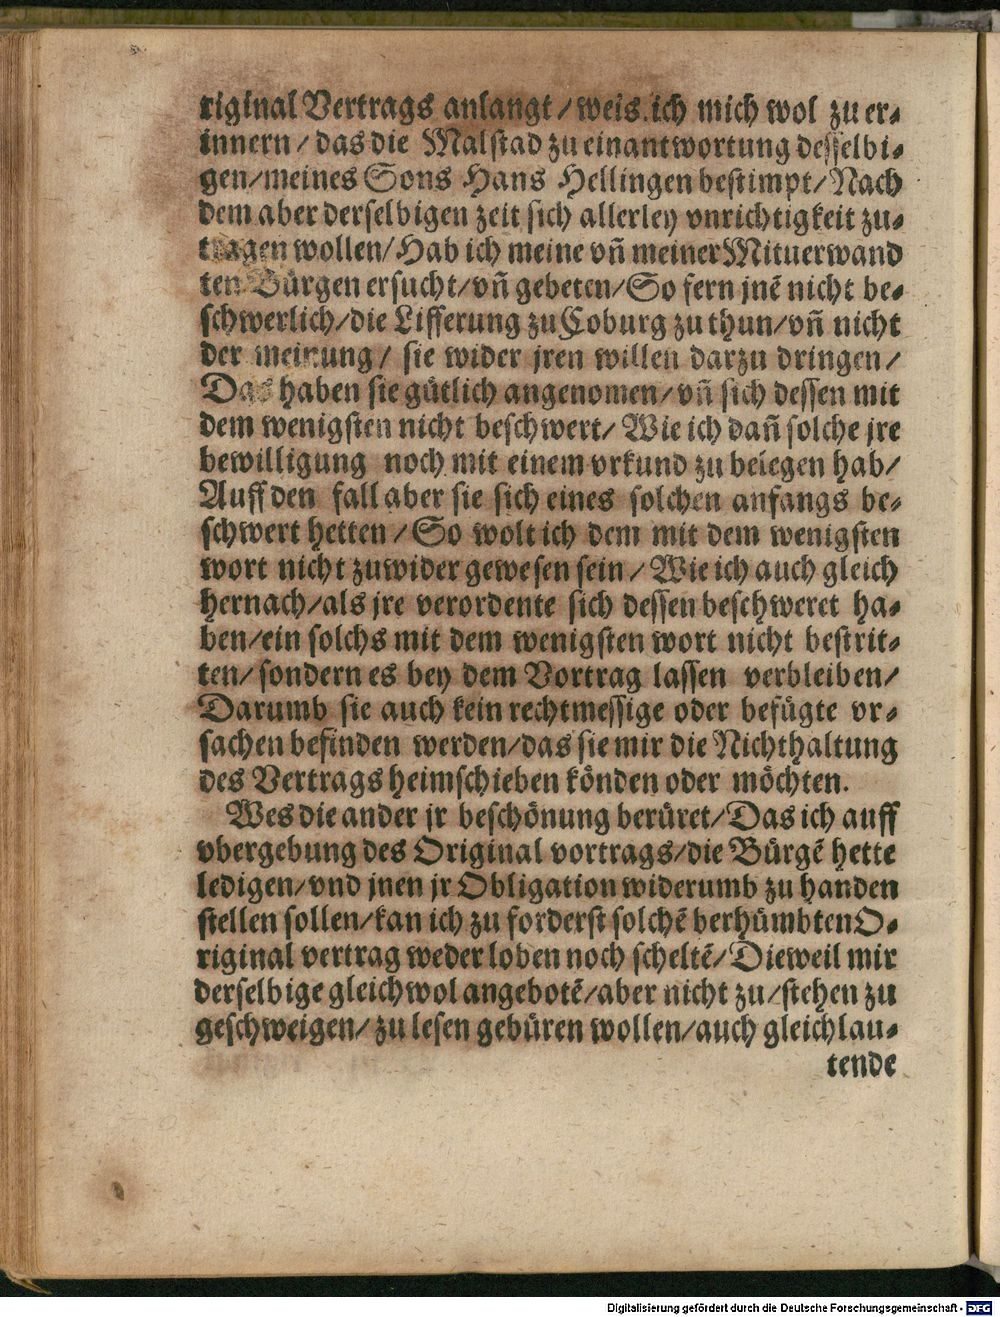 riginal Vertrags anlangt / weis ich mich wol zu er-
innern / das die Malstad zu einantwortung desselbi-
gen / meines Sons Hans Hellingen bestimpt / Nach
dem aber derselbigen zeit sich allerley vnrichtigkeit zu-
tragen wollen / Hab ich meine vñ meiner Mituerwand
ten Bürgen ersucht / vñ gebeten / So fern jnẽ nicht be-
schwerlich / die Lifferung zu Coburg zu thun / vñ nicht
der meinung / sie wider jren willen darzu dringen /
Das haben sie gütlich angenomen / vñ sich dessen mit
dem wenigsten nicht beschwert / Wie ich dañ solche jre
bewilligung noch mit einem vrkund zu belegen hab /
Auff den fall aber sie sich eines solchen anfangs be-
schwert hetten / So wolt ich dem mit dem wenigsten
wort nicht zuwider gewesen sein / Wie ich auch gleich
hernach / als jre verordente sich dessen beschweret ha-
ben / ein solchs mit dem wenigsten wort nicht bestrit-
ten / sondern es bey dem Vortrag lassen verbleiben /
Darumb sie auch kein rechtmessige oder befügte vr-
sachen befinden werden / das sie mir die Nichthaltung
des Vertrags heimschieben könden oder möchten.
Wes die ander jr beschönung berüret / Das ich auff
vbergebung des Original vortrags / die Bürgẽ hette
ledigen / vnd jnen jr Obligation widerumb zu handen
stellen sollen / kan ich zu forderst solchẽ berhümbten O-
riginal vertrag weder loben noch scheltẽ / Dieweil mir
derselbige gleichwol angebotẽ / aber nicht zu / stehen zu
geschweigen / zu lesen gebüren wollen / auch gleichlau-
tende
Digitalisierung gefördert durch die Deutsche Forschungsgemeinschaft - DFG